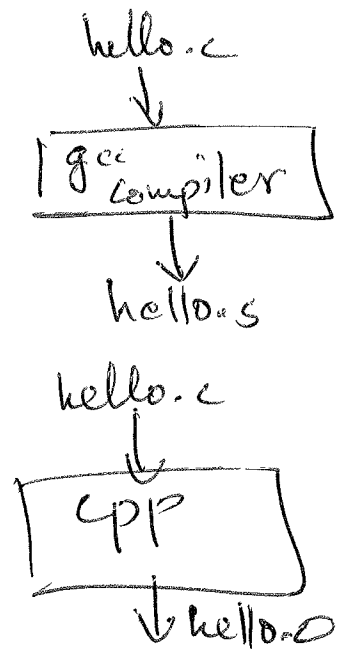 hello.c
gcc
compiler
hello.s
hello.c
cpp
hello.o